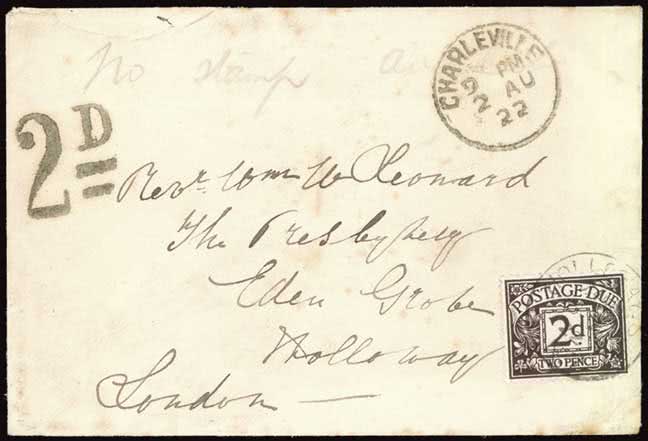 No stamp
CHARLEVILLE
PM
AU
22
2D
Revr. Wm W Leonard
The Presbytery
Eden Grobe
Holloway
London
POSTAGE DUE
2d
TWO PENCE